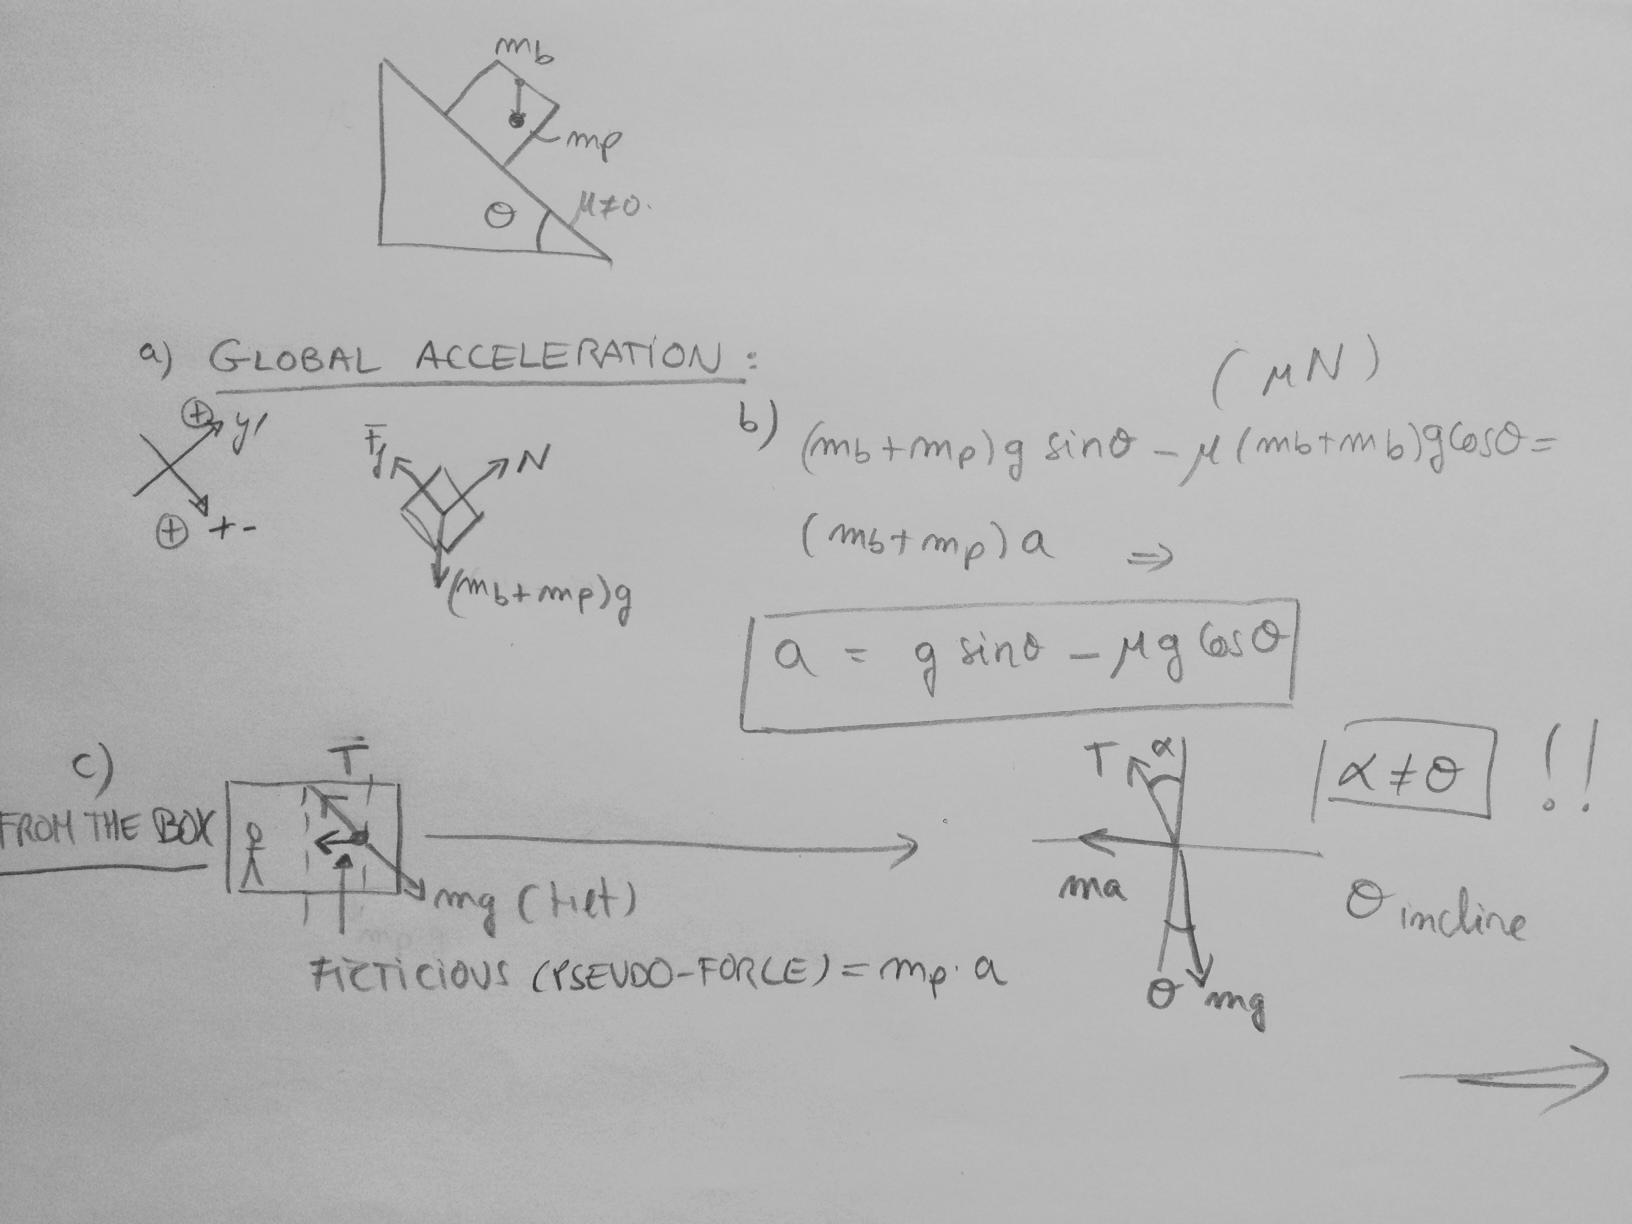 mb
mp
θ
μ≠0.
a) GLOBAL ACCELERATION:
⊕ y'
⊕ +-
Ff
N
(mb+mp)g
(μN)
b) (mb+mp)g sinθ - μ(mb+mb)g cosθ =
(mb+mp)a ⇒
a = g sinθ - μg cosθ
c)
FROM THE BOX
T
mg (tilt)
FICTICIOUS (PSEUDO-FORCE) = mp · a
T α
ma
θ mg
α ≠ θ !!
θ incline